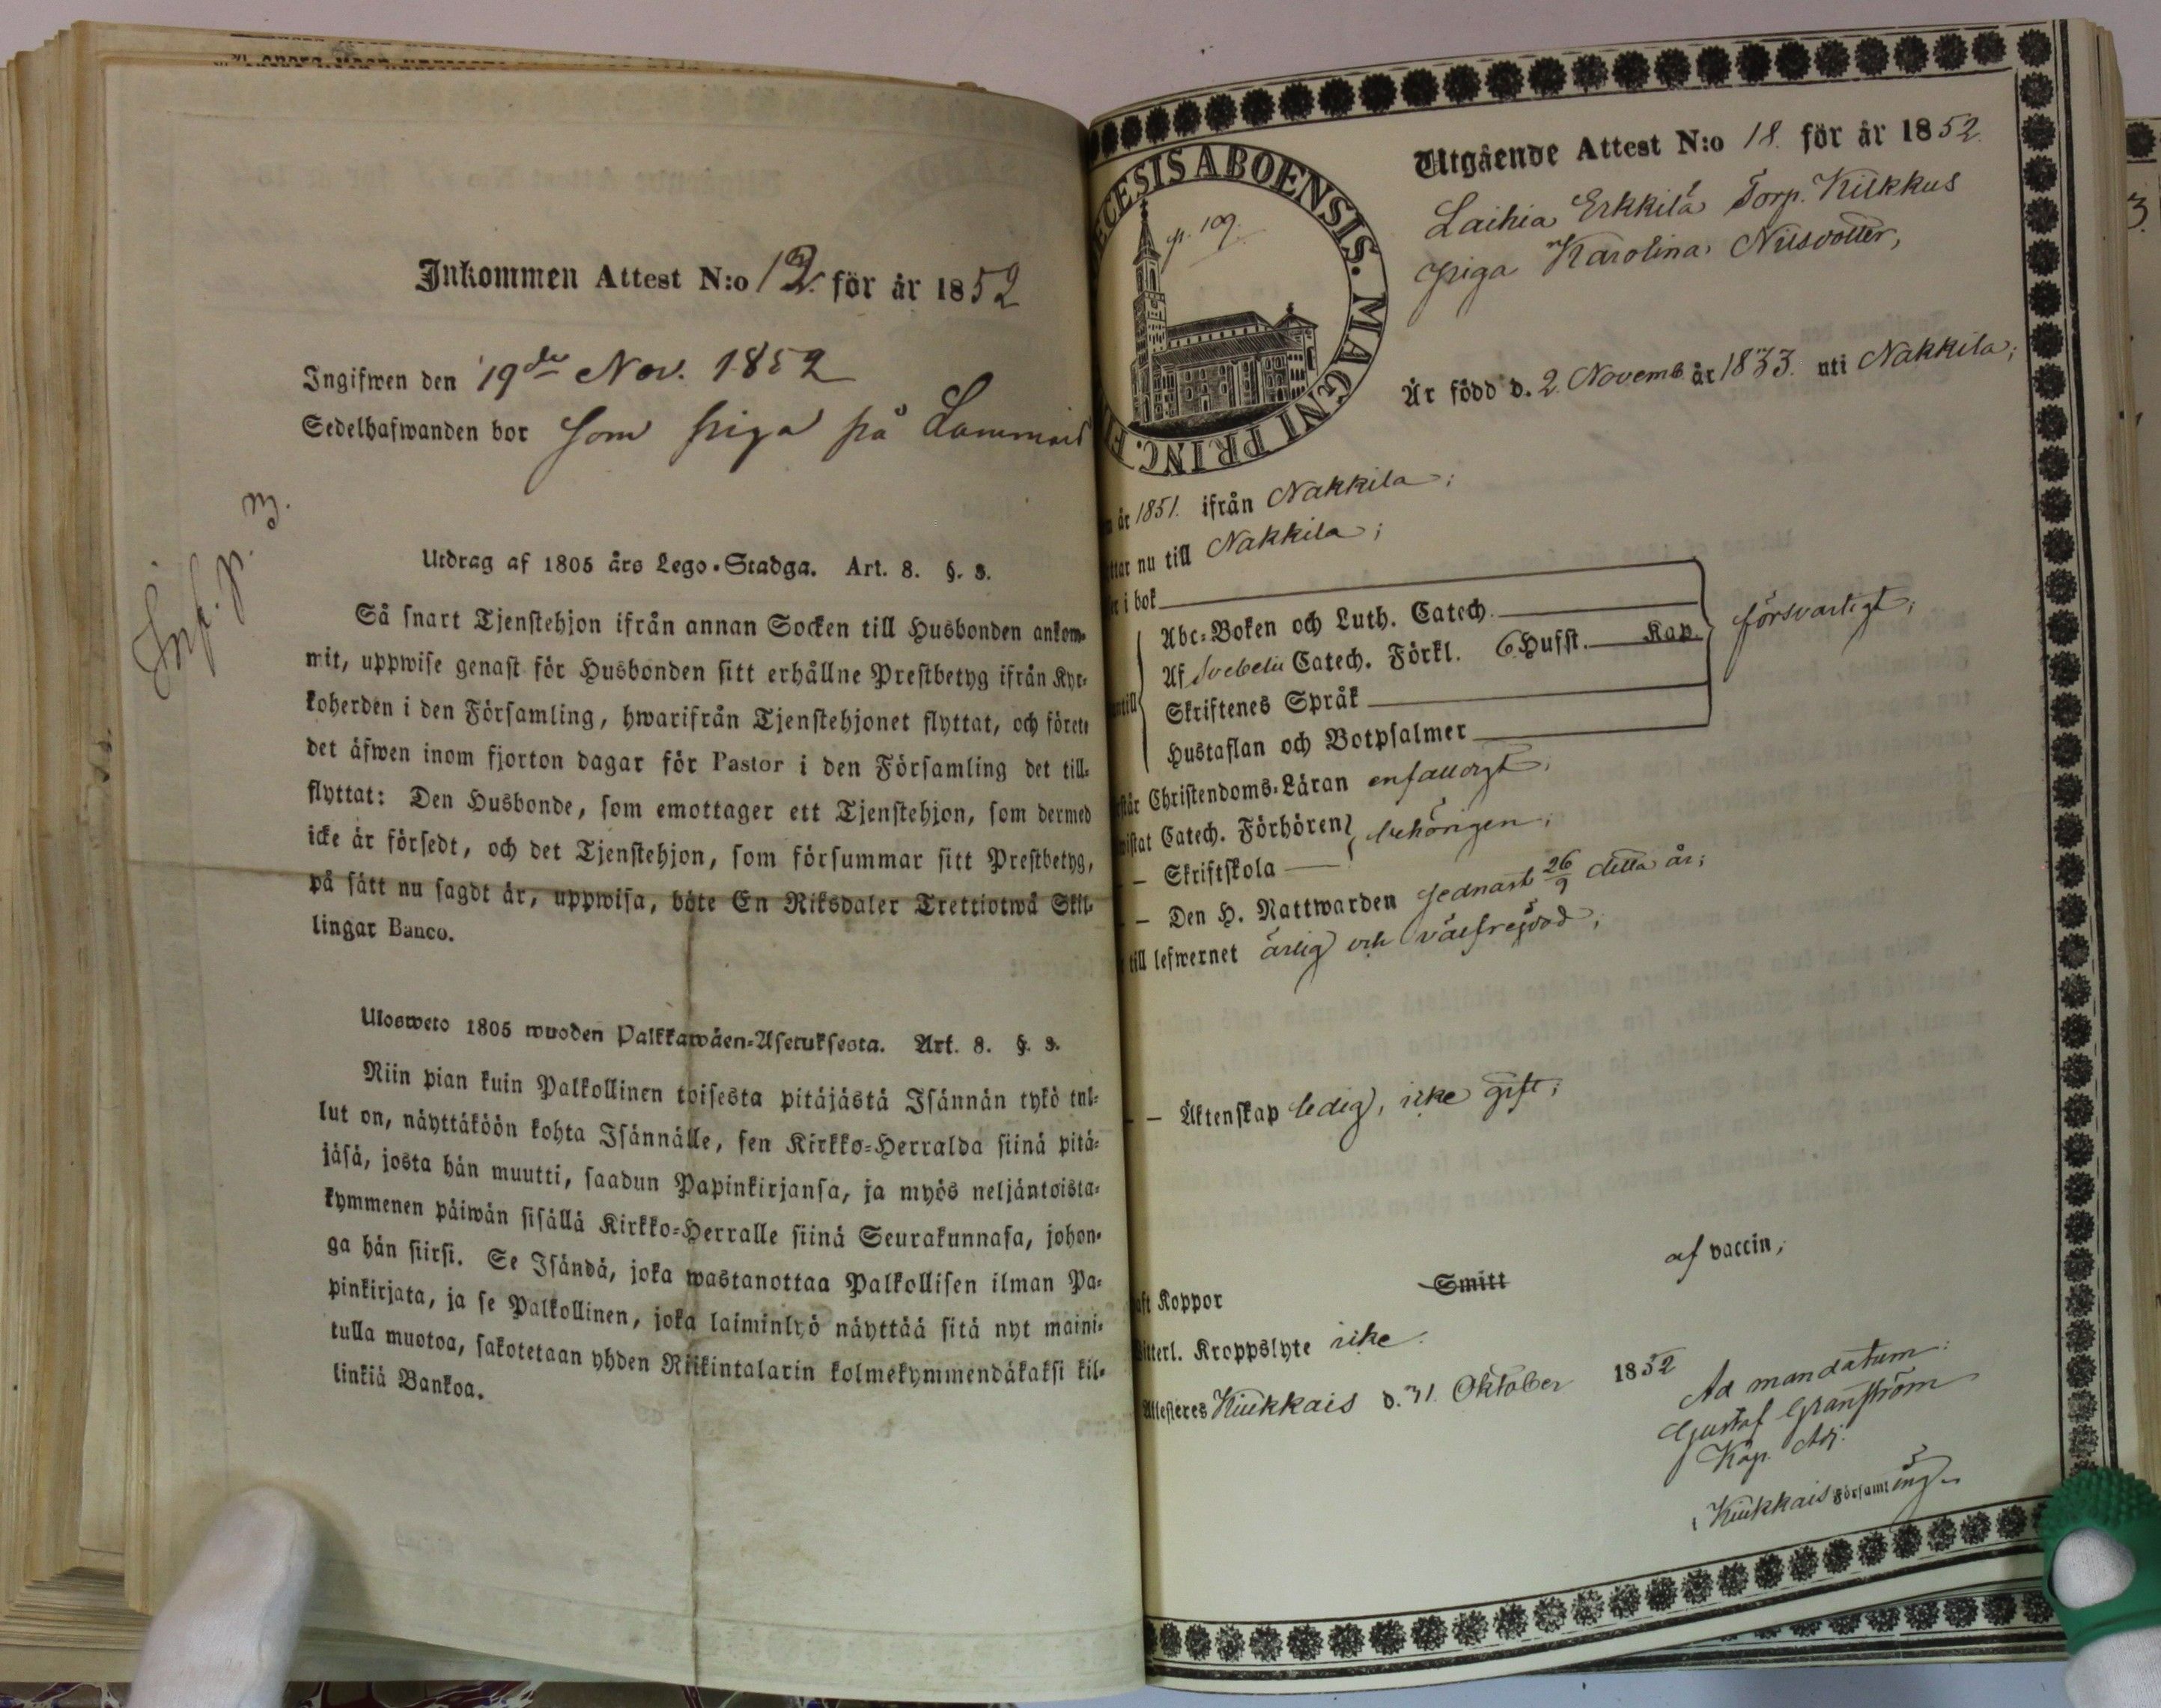 Inkommen Attest N:o 12. för år 1852
Ingifwen den 19de Nov. 1852
Sedelhafwanden bor som piga på Lammais
Inf. p. 3.
Utdrag af 1805 års Lego-Stadga. Art. 8. §. 3.
Så snart Tjenstehjon ifrån annan Socken till Husbonden ankom-
mit, uppwise genast för Husbonden sitt erhållne Prestbetyg ifrån Kyr-
koherden i den Församling, hwarifrån Tjenstehjonet flyttat, och förete
det äfwen inom fjorton dagar för Pastor i den Församling det till-
flyttat: Den Husbonde, som emottager ett Tjenstehjon, som dermed
icke är försedt, och det Tjenstehjon, som försummar sitt Prestbetyg,
på sätt nu sagdt är, uppwisa, böte En Riksdaler Trettiotwå Skil-
lingar Banco.
Ulosweto 1805 wuoden Palkkawäen-Asetuksesta. Art. 8. §. 3.
Niin pian kuin Palkollinen toisesta pitäjästä Isännän tykö tul-
lut on, näyttäköön kohta Isännälle, sen Kirkko-Herralda siinä pitä-
jäsä, josta hän muutti, saadun Papinkirjansa, ja myös neljäntoista-
kymmenen päiwän sisällä Kirkko-Herralle siinä Seurakunnasa, johon-
ga hän siirsi. Se Isändä, joka wastanottaa Palkollisen ilman Pa-
pinkirjata, ja se Palkollinen, joka laiminlyö näyttää sitä nyt maini-
tulla muotoa, sakotetaan yhden Riikintalarin kolmekymmendäkaksi kil-
linkiä Bankoa.
ECESIS ABOENSIS. MAGNI PRINC. FI
p. 109.
Utgående Attest N:o 18. för år 1852.
Laihia Erkkilä Torp. Kiikkus
piga Karolina Nilsdotter,
Är född d. 2. Novemb. år 1833. uti Nakkila;
år 1851. ifrån Nakkila;
ttar nu till Nakkila;
i bok
Abc-Boken och Luth. Catech.
försvarligt;
Af Svebelii Catech. Förkl. 6 Husst. Kap.
Skriftenes Språk
antill
Hustaflan och Botpsalmer
står Christendoms-Läran enfaldigt;
wistat Catech. Förhören
behörigen;
— Skriftskola
— Den H. Nattwarden sednast 26/9 detta år;
till lefwernet ärlig och välfrejdad;
— Äktenskap ledig, icke gift;
aft Koppor Smitt af vaccin;
Witterl. Kroppslyte icke.
Attesteres Kiukkais d. 31. Oktober 1852
Ad mandatum:
Gustaf Granström
Kap. Adj.
i Kiukkais Församling